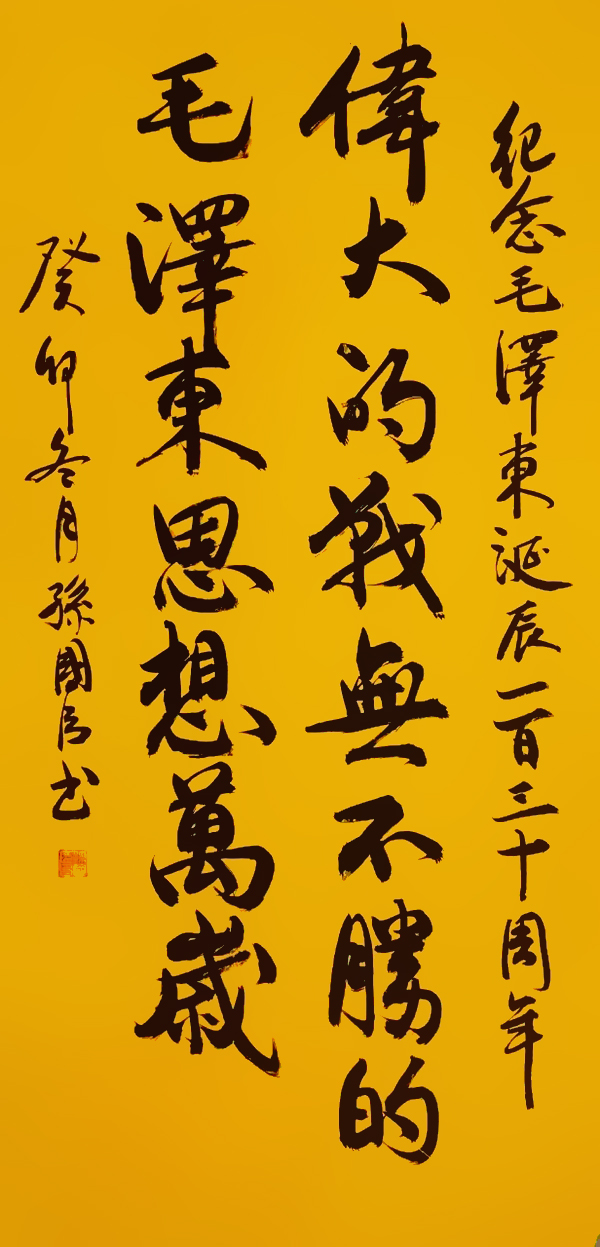 紀念毛澤東誕辰一百三十周年
偉大的戰無不勝的
毛澤東思想萬歲
癸卯冬月孫國书